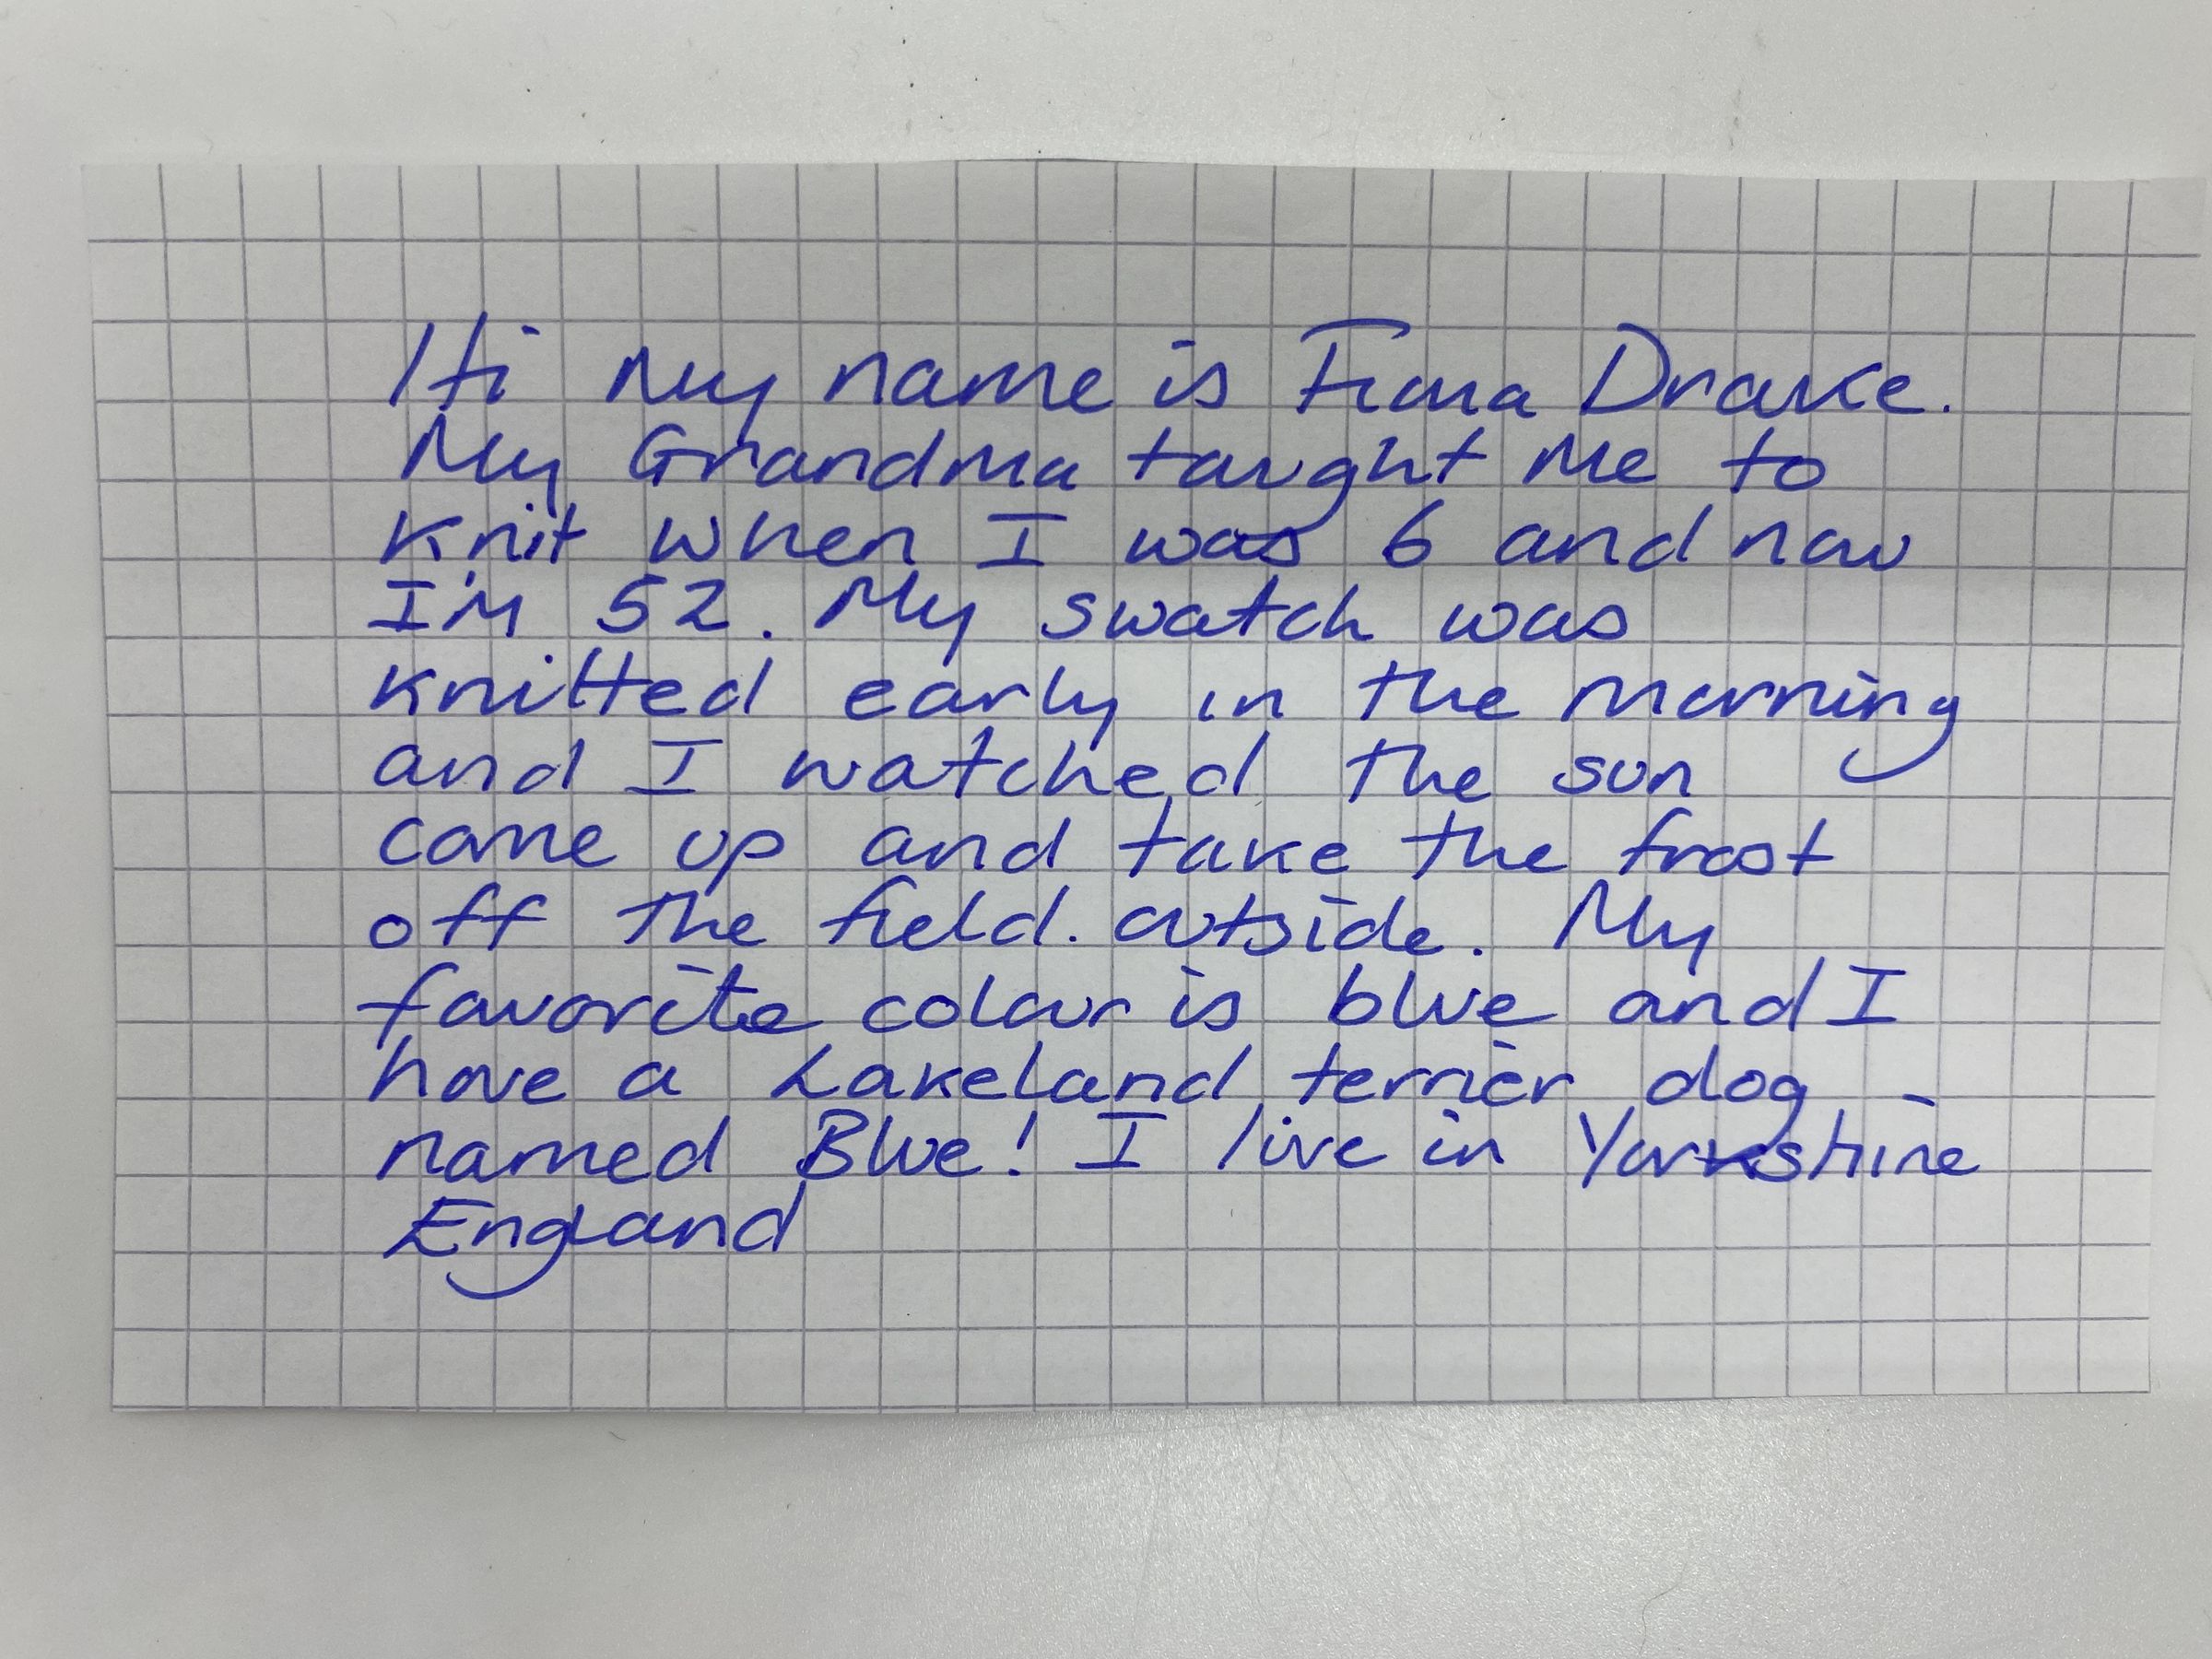 Hi My name is Fiona Drake.
My Grandma taught Me to
knit when I was 6 and now
I'M 52. My swatch was
knitted early in the morning
and I watched the sun
come up and take the frost
off the field. outside. My
favorite colour is blue and I
have a Lakeland terrier dog
named Blue! I live in Yorkshire
England